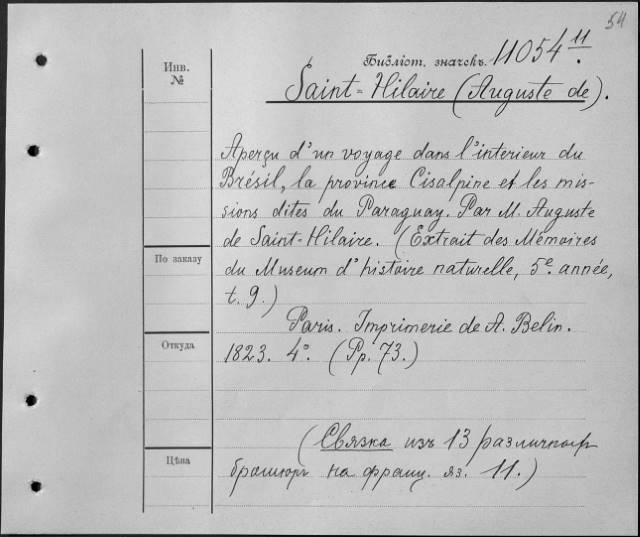 54
Инв.
№
Библіот. значекъ. 11054 11.
Saint-Hilaire (Auguste de).
Aperçu d'un voyage dans l'interieur du
Brésil, la province Cisalpine et les mis-
sions dites du Paraguay. Par M. Auguste
de Saint-Hilaire. (Extrait des Mémoires
По заказу
du Museum d'histoire naturelle, 5e année,
t. 9.)
Paris. Imprimerie de A. Belin.
Откуда
1823. 4°. (Pp. 73.)
(Связка изъ 13 различныхъ
Цѣна
брошюръ на франц. яз. 11.)